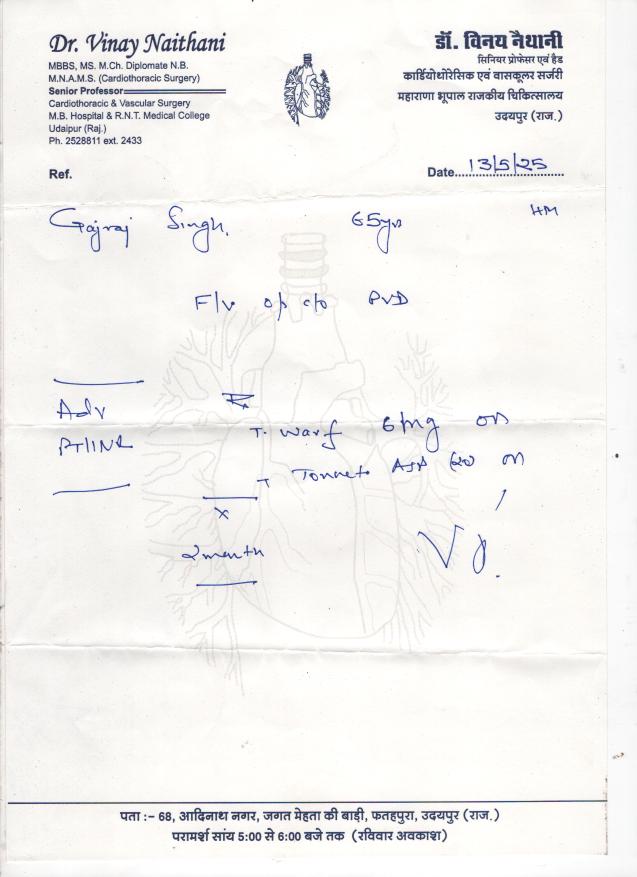 Dr. Vinay Naithani
MBBS, MS. M.Ch. Diplomate N.B.
M.N.A.M.S. (Cardiothoracic Surgery)
Senior Professor
Cardiothoracic & Vascular Surgery
M.B. Hospital & R.N.T. Medical College
Udaipur (Raj.)
Ph. 2528811 ext. 2433
डॉ. विनय नैथानी
सिनियर प्रोफेसर एवं हैड
कार्डियोथोरेसिक एवं वासकूलर सर्जरी
महाराणा भूपाल राजकीय चिकित्सालय
उदयपुर (राज.)
Ref.
Date 13/5/25
Gajraj Singh. 65yrs HM
F/v o/p c/o PVD
Adv
PT/INR
T. Warf 6mg on
T
x
2 month
पता :– 68, आदिनाथ नगर, जगत मेहता की बाड़ी, फतहपुरा, उदयपुर (राज.)
परामर्श सांय 5:00 से 6:00 बजे तक (रविवार अवकाश)